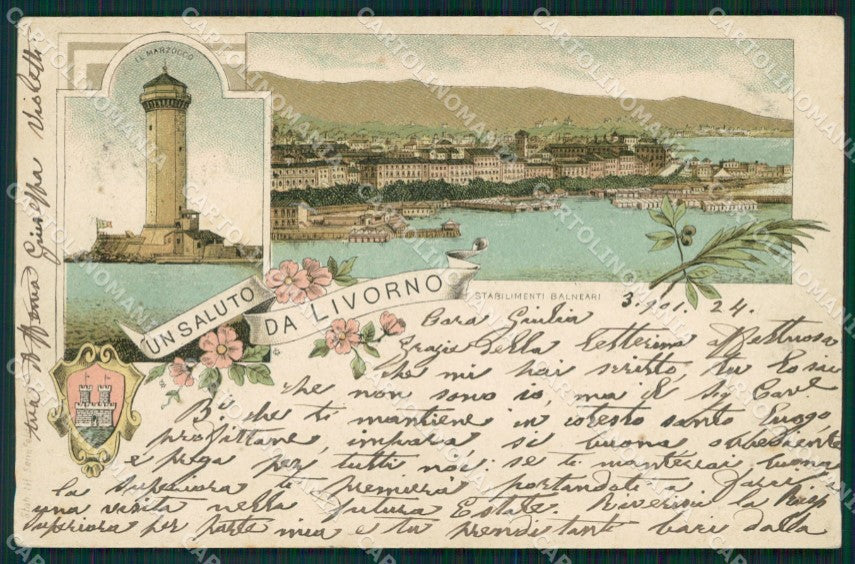 IL MARZOCCO
STABILIMENTI BALNEARI
UN SALUTO
DA LIVORNO
3. 901. 24.
Cara Giulia
Grazie della letterina affettuosa
che mi hai scritto, tu lo sai
che non sono io, ma è
che ti mantiene in cotesto santo luogo
impara si buona obbediente
e prega per tutti noi: se ti manterrai buona
la Superiora ti premierà portandoti a farci
una visita nella futura Estate. Riverisci la
Superiora per parte mia e tu prenditi tanti baci dalla
tua Mamma Giuseppa Violetti
CARTOLINOMANIA